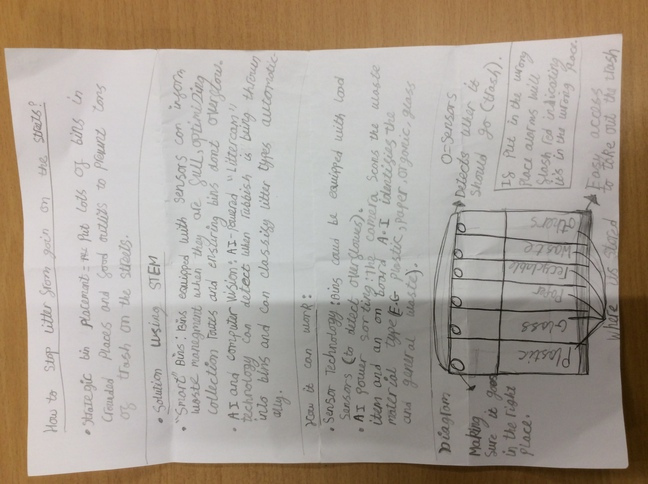 How to stop litter from goin on the streets?
• Strategic bin placement = Put lots of bins in
Crowded Places and food outlets to prevent tons
of trash on the streets.
• Solution using STEM
• "Smart" Bins: Bins equipped with sensors can inform
waste managment when they are full, optimizing
collection routes and ensuring bins dont overflow.
• AI and computer vision: AI-Powered "Littercam"
technology can detect when rubbish is being thrown
into bins and can classify litter types automatic-
ally.
How it can work:
• Sensor Technology: Bins could be equipped with load
sensors (to detect overflows).
• AI power Sorting: The camera scans the waste
item and an on board A.I identifies the
material type E.G Plastic, paper, organic, glass
and general waste).
Diagram
O-Sensors
Making
Sure it goes
in the right
Place.
Detects when it
should go (trash).
If put in the wrong
Place alarms will
flash red indicating
its in the wrong place.
Plastic
Glass
Paper
Recyclable
Waste
Others
Where its stored
Easy access
to take out the trash